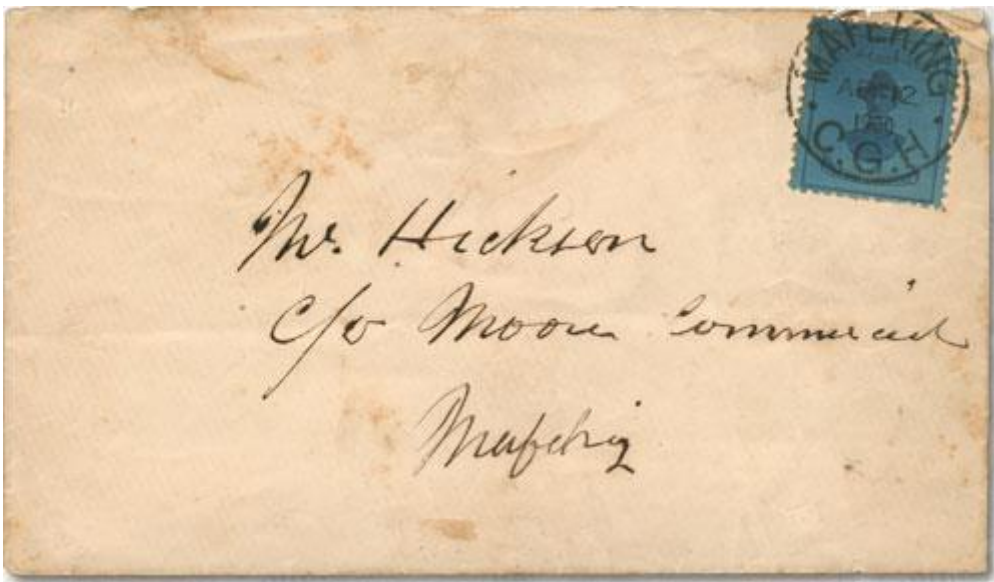 MAFEKING
12
C.G.H.
Mr. Hickson
c/o Moore Commercial
Mafeking